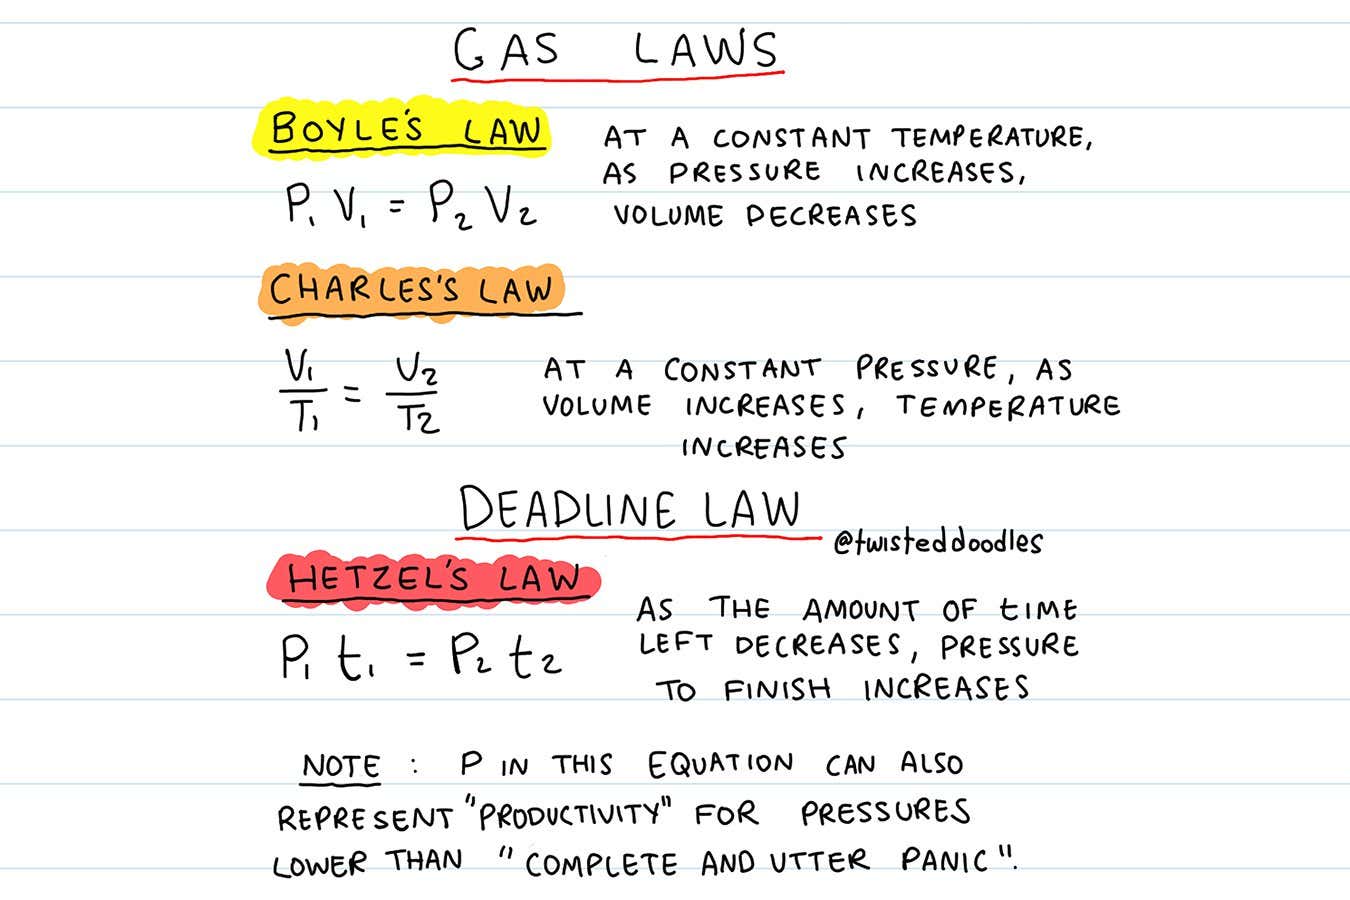 GAS LAWS
BOYLE'S LAW
AT A CONSTANT TEMPERATURE,
AS PRESSURE INCREASES,
VOLUME DECREASES
P₁ V₁ = P₂ V₂
CHARLES'S LAW
V₁/T₁ = V₂/T₂
AT A CONSTANT PRESSURE, AS
VOLUME INCREASES, TEMPERATURE
INCREASES
DEADLINE LAW
@twisteddoodles
HETZEL'S LAW
AS THE AMOUNT OF TIME
LEFT DECREASES, PRESSURE
TO FINISH INCREASES
P₁ t₁ = P₂ t₂
NOTE : P IN THIS EQUATION CAN ALSO
REPRESENT "PRODUCTIVITY" FOR PRESSURES
LOWER THAN "COMPLETE AND UTTER PANIC".